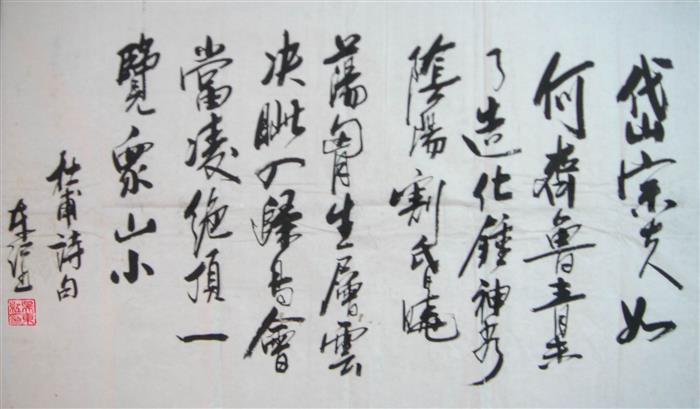 岱宗夫如
何齊魯青未
了造化鍾神秀
陰陽割昏曉
蕩胷生層雲
决眦入歸鳥會
當凌絕頂一
覽眾山小
杜甫詩句